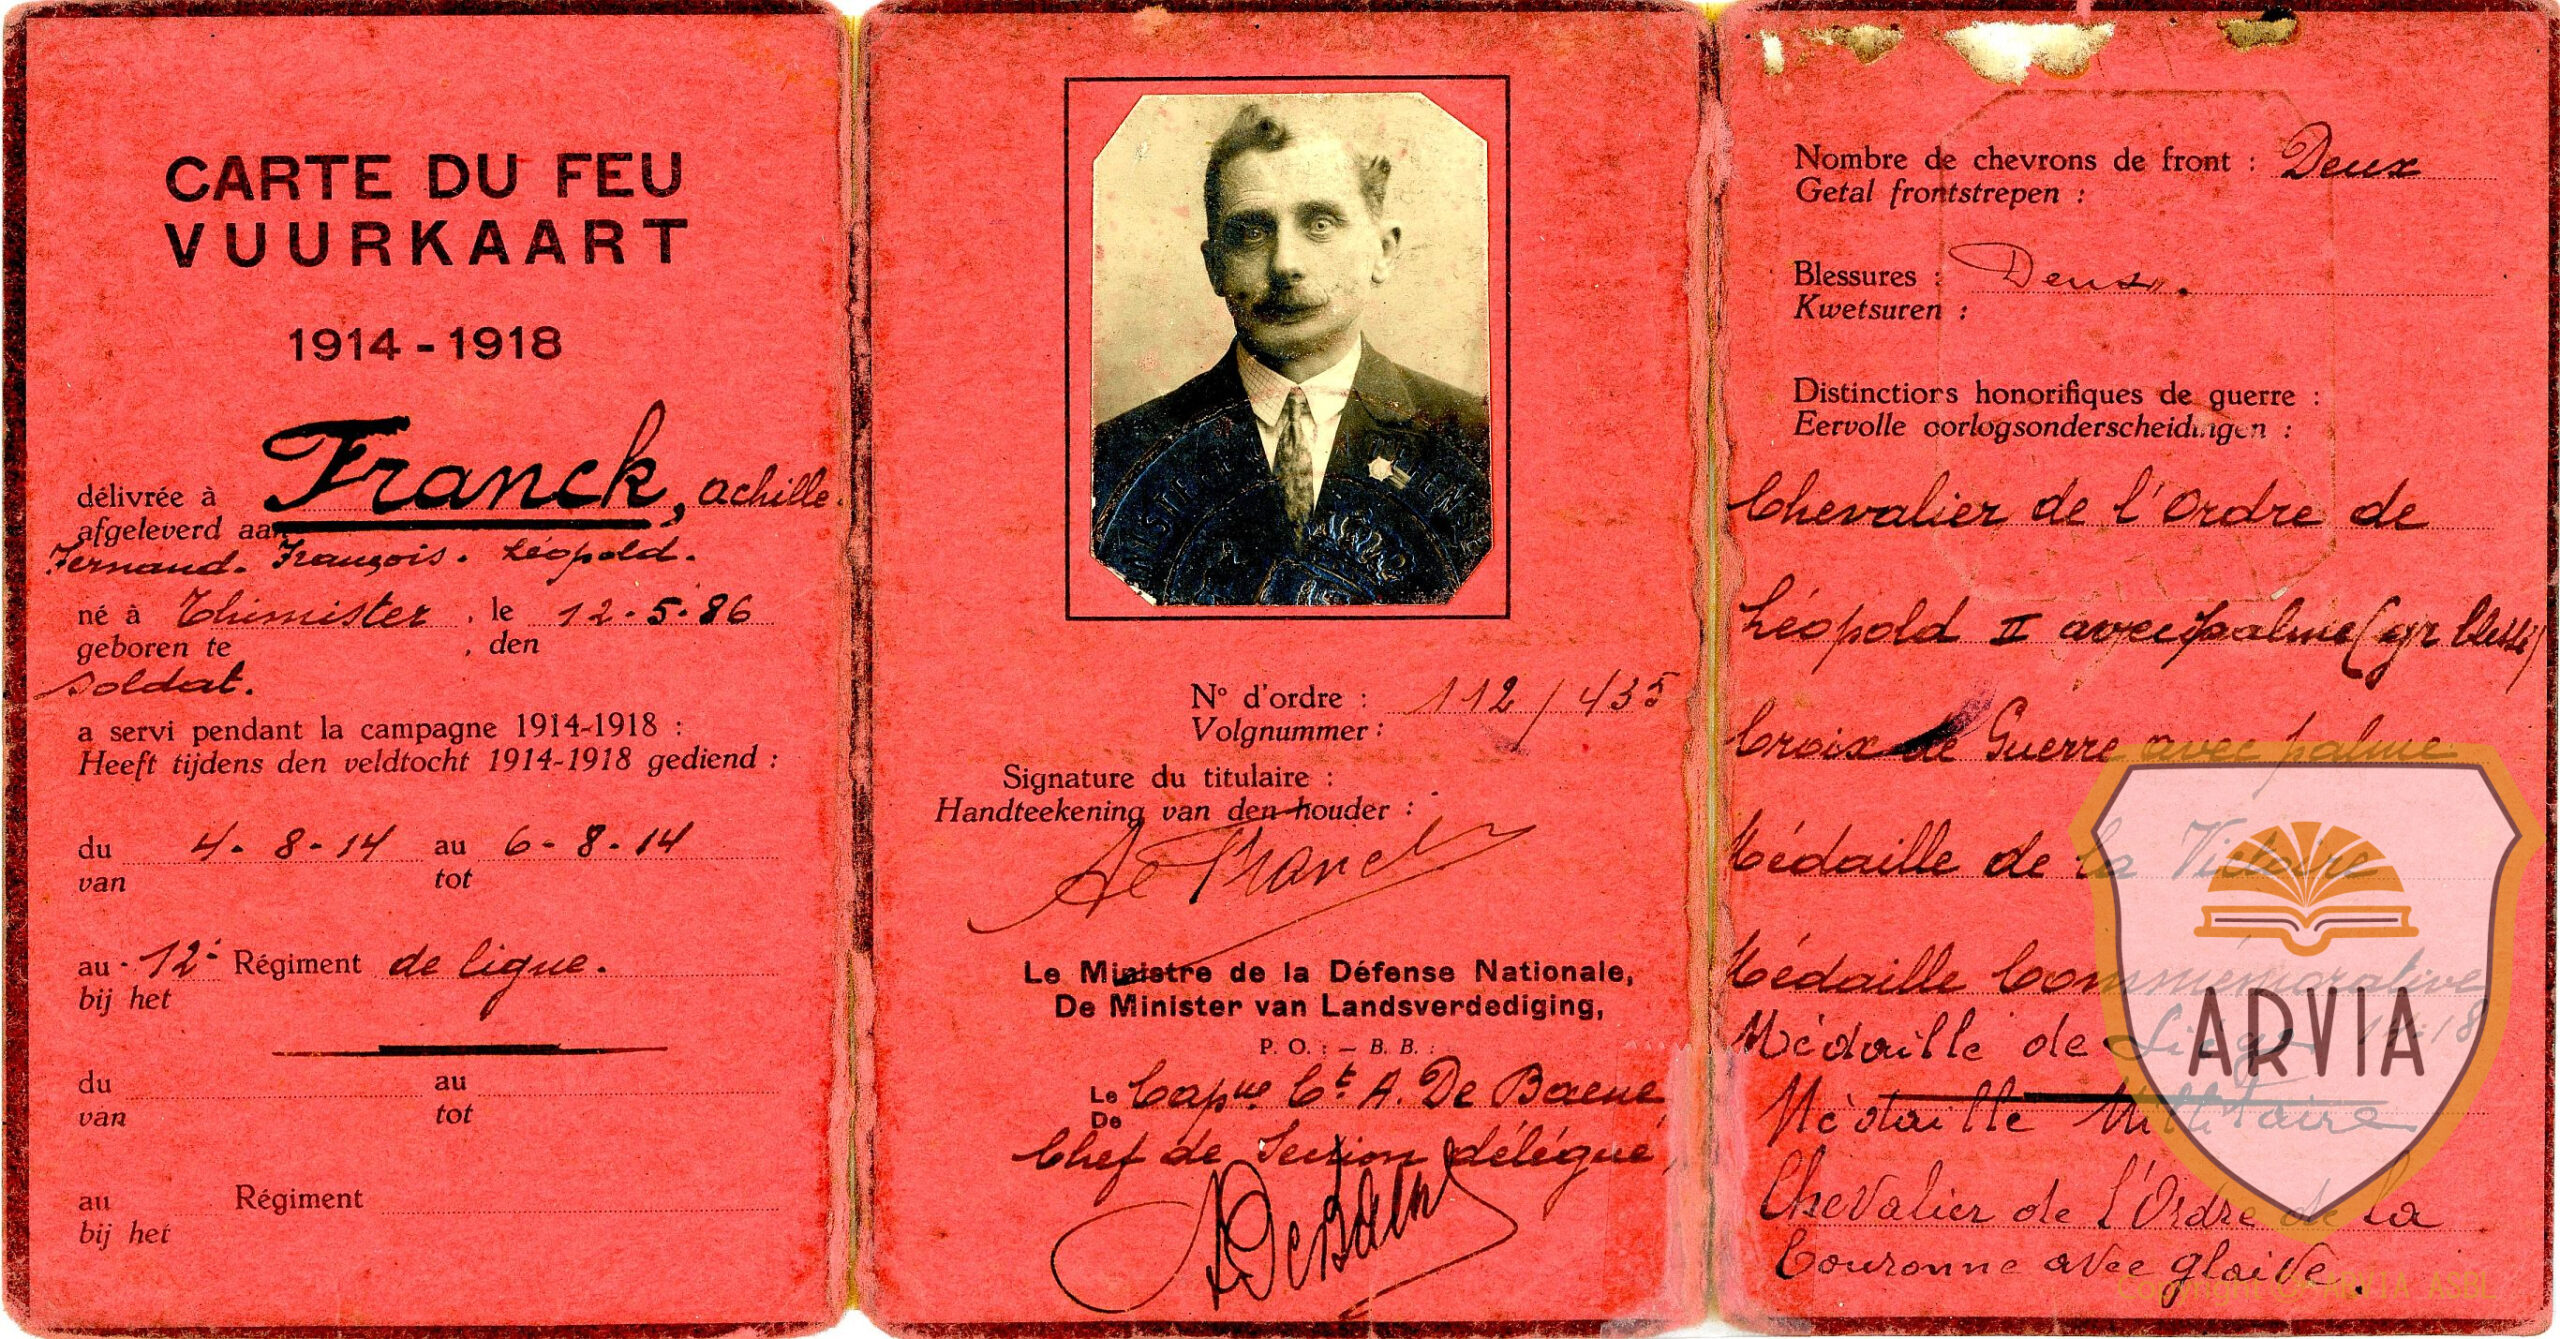 CARTE DU FEU
VUURKAART
1914 - 1918
délivrée à Franck, Achille.
afgeleverd aan
Fernand. François. Léopold.
né à Thimister, le 12-5-86
geboren te , den
soldat.
a servi pendant la campagne 1914-1918 :
Heeft tijdens den veldtocht 1914-1918 gediend :
du 4-8-14 au 6-8-14
van tot
au 12e Régiment de ligne.
bij het
du au
van tot
au Régiment
bij het
No d'ordre : 112/435
Volgnummer :
Signature du titulaire :
Handteekening van den houder :
Franck
Le Ministre de la Défense Nationale,
De Minister van Landsverdediging,
P. O. : — B. B. :
Le Capne Ct A. De Baene,
De
Chef de Section délégué,
A De Baene
Nombre de chevrons de front : Deux
Getal frontstrepen :
Blessures : Deux.
Kwetsuren :
Distinctions honorifiques de guerre :
Eervolle oorlogsonderscheidingen :
Chevalier de l'Ordre de
Léopold II avec palme (gr blessé)
Croix de Guerre avec palme
Médaille de la Victoire
Médaille Commémorative
14-18
Médaille de Liège
Médaille Militaire
Chevalier de l'Ordre de la
Couronne avec glaive.
ARVIA
Copyright © ARVIA ASBL